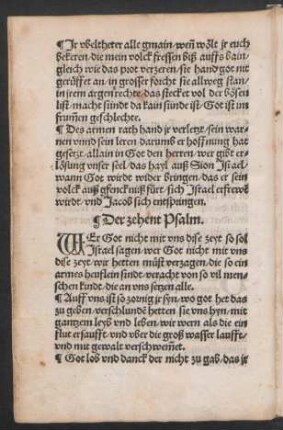 ¶ Jr vbeltheter alle gmain/ weñ wölt jr euch
bekeren/ die mein volck fressen biß auffs bain/
gleich wie das prot verzeren/ sie hand got nit
gerüffet an/ in grosser forcht sie allweg stan/
in jrem argen rechte/ das steckt vol der bösen
list/ macht sünd da kain sünde ist/ Got ist im
frum̃en geschlechte.
¶ Des armen rath hand jr verletzt/ sein war-
nen vnnd sein leren/ darumb er hoffnung hat
gesetzt/ allain in Got den herren/ wer gibt er-
lösung vnser seel/ das hayl auß Sion Jsrael/
wann Got wirdt wider bringen/ das er sein
volck auß gfencknüß fürt/ sich Jsrael erfrewē
wirdt/ vnd Jacob sich entspringen.
¶ Der zehent Psalm.
WEr Got nicht mit vns dise zeyt/ so sol
Jsrael sagen/ wer Got nicht mit vns
dise zeyt/ wir hetten müst verzagen/ die so ein
armes heuflein sindt/ veracht von so vil men-
schen kindt/ die an vns setzen alle.
¶ Auff vns ist so zornig jr syn/ wo got het das
zu geben/ verschlundt hetten sie vns hyn/ mit
gantzem leyb vnd leben/ wir wern als die ein
flut erseufft/ vnd vber die groß wasser laufft/
vnd mit gewalt verschwem̃et.
¶ Got lob vnd danck der nicht zu gab/ das jr